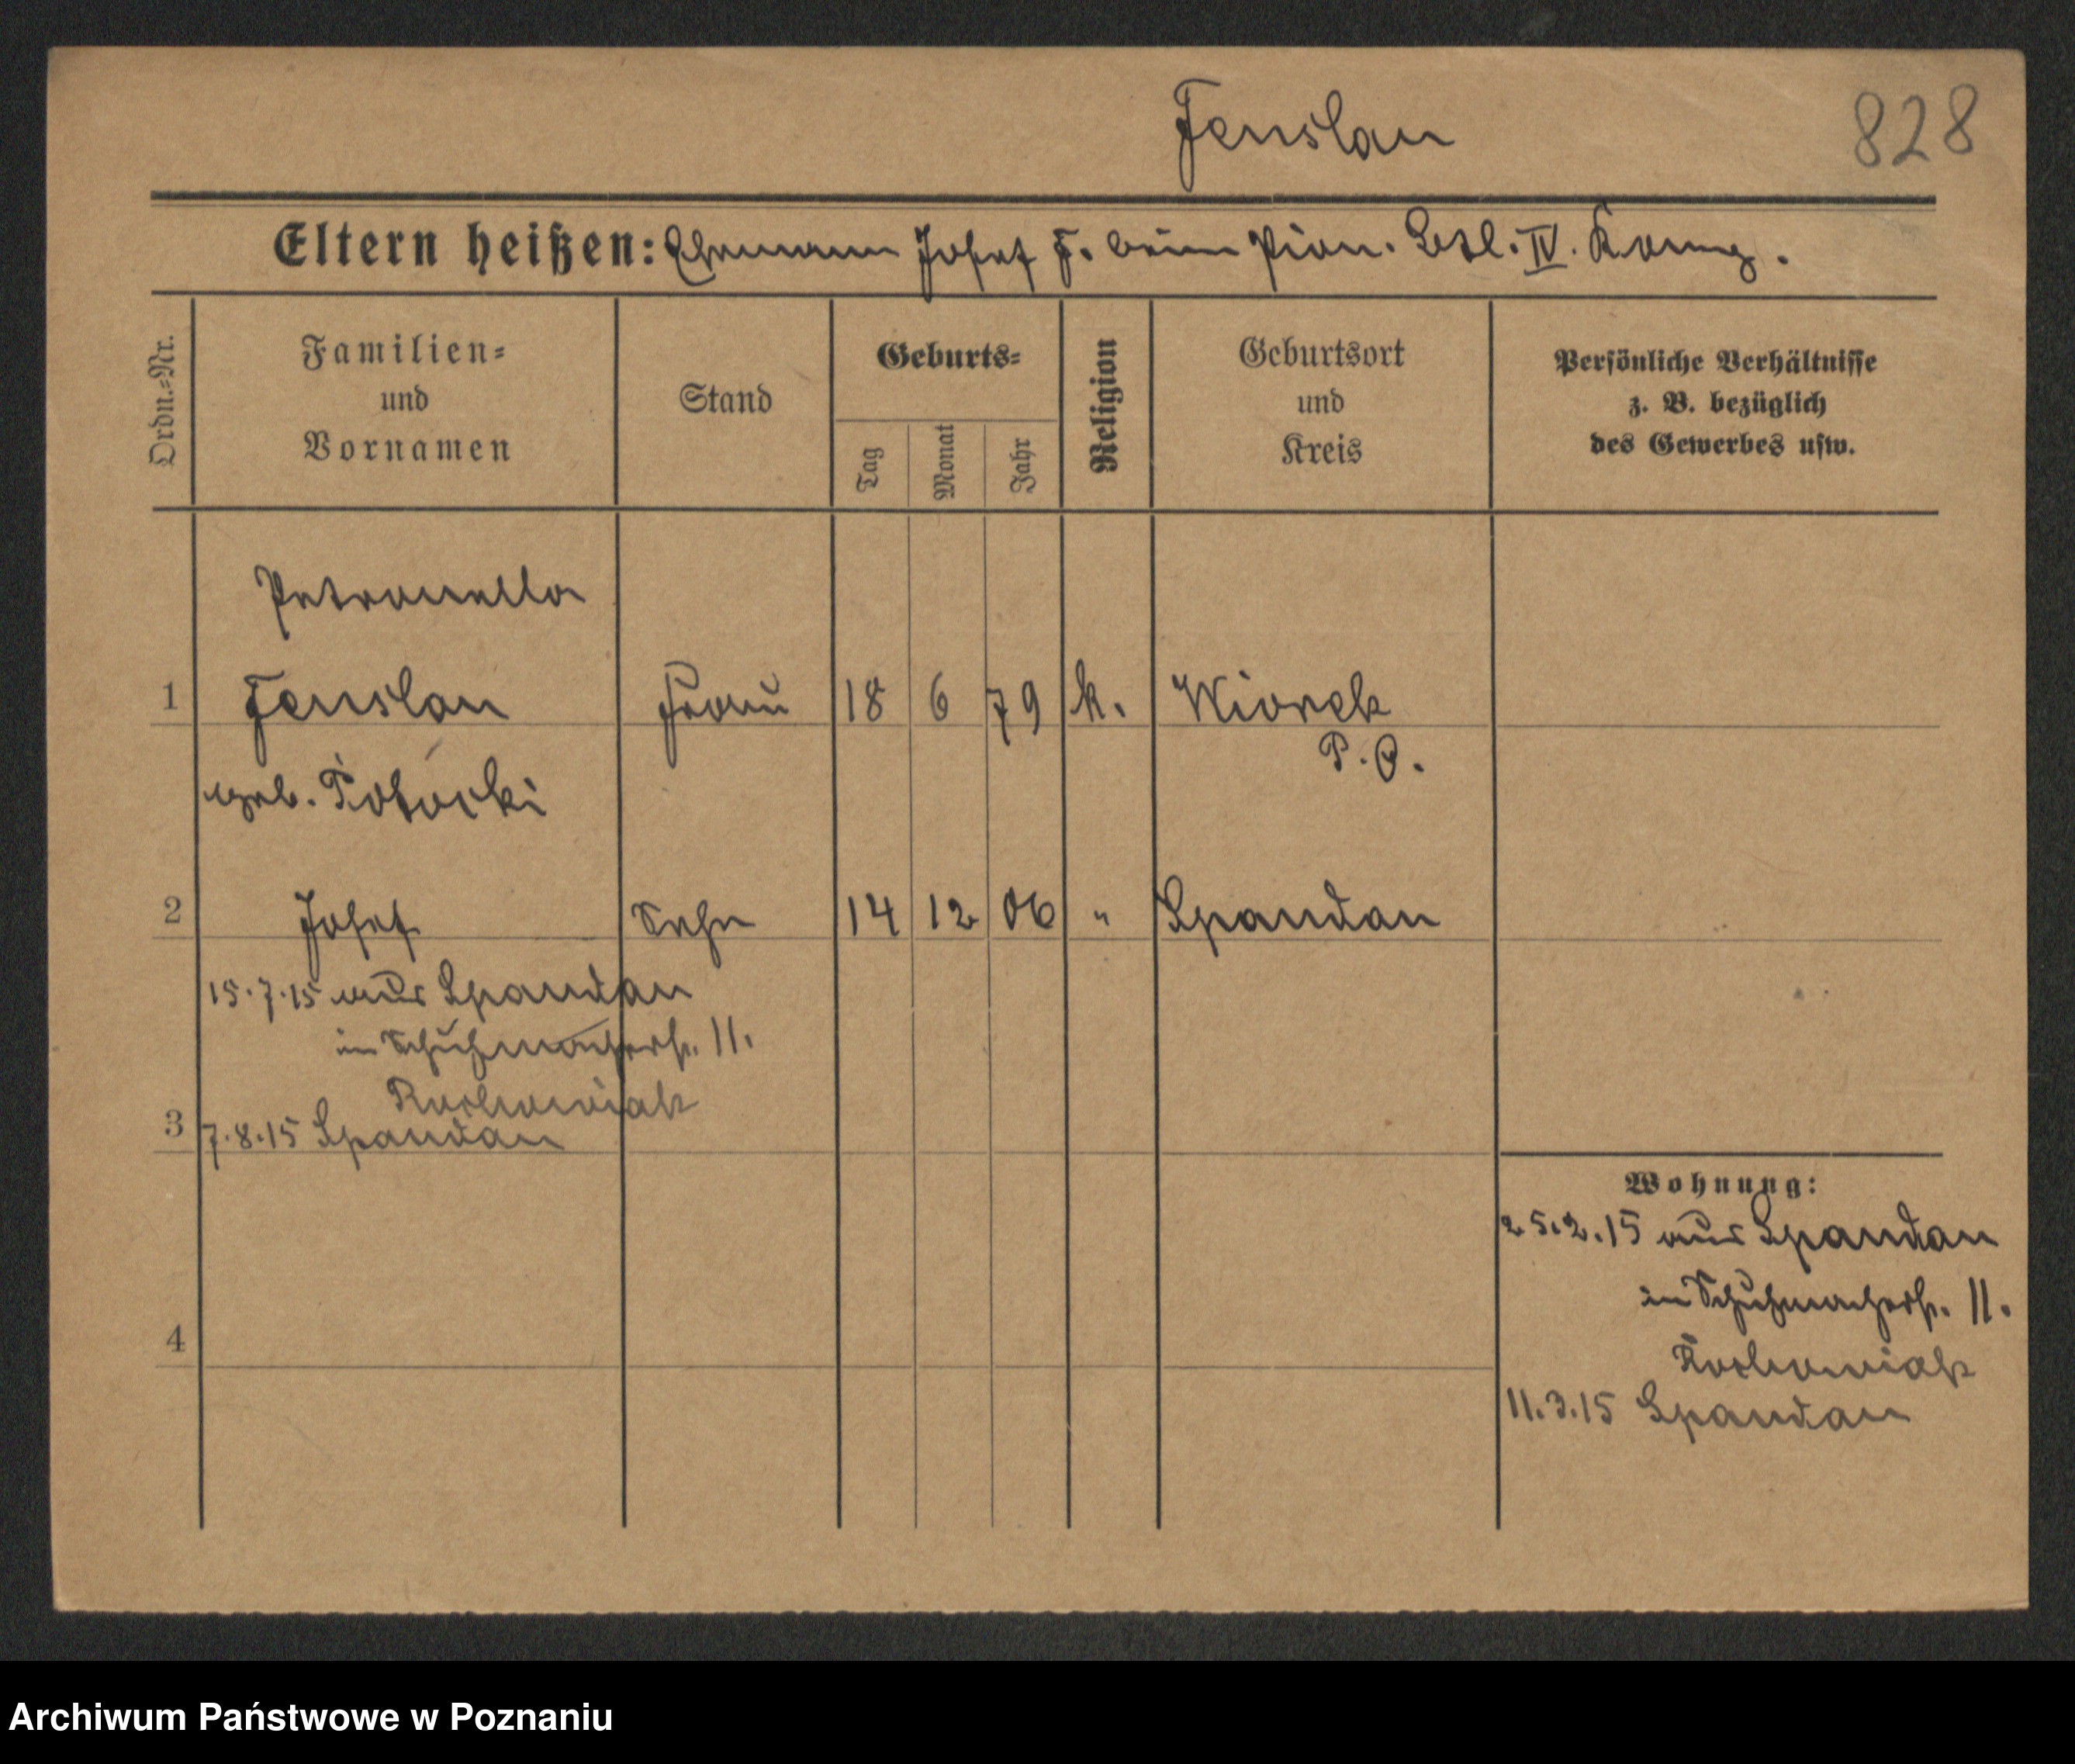 Fenslau
828
Eltern heißen: Ehemann Josef F. beim Pion. Batl. IV. Komp.
Ordn.-Nr.
Familien- und Vornamen
Stand
Geburts-
Tag
Monat
Jahr
Religion
Geburtsort und Kreis
Persönliche Verhältnisse
z. B. bezüglich
des Gewerbes usw.
Petronella
1 Fenslau Frau 18 6 79 k. Wiorek
P. O.
geb. Potocki
2 Josef Sohn 14 12 06 " Spandau
15.7.15 aus Spandau
in Schuhmacherstr. 11.
3 7.8.15 Spandau
4
Wohnung:
25.2.15 aus Spandau
in Schuhmacherstr. 11.
11.3.15 Spandau
Archiwum Państwowe w Poznaniu